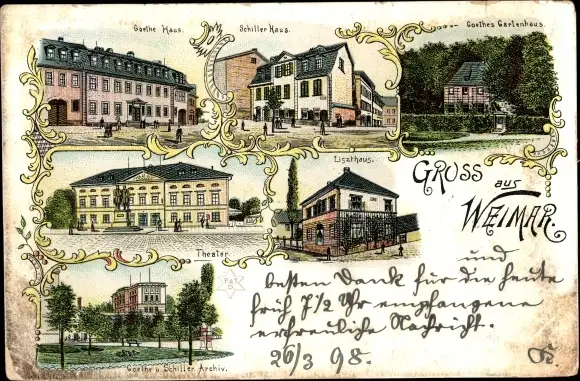 Goethe Haus.
Schiller Haus.
Goethes Gartenhaus.
Liszthaus.
GRUSS
aus
WEIMAR.
Theater.
Goethe u. Schiller Archiv.
und
besten Dank für die heute
früh 7½ Uhr empfangene
erfreuliche Nachricht.
26/3 98.